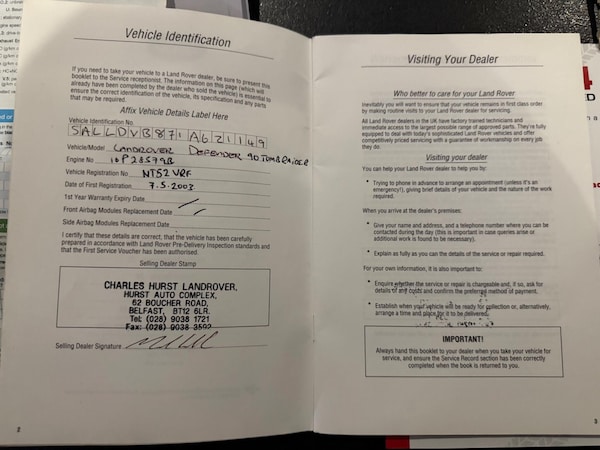 Vehicle Identification
If you need to take your vehicle to a Land Rover dealer, be sure to present this
booklet to the Service receptionist. The information on this page (which will
already have been completed by the dealer who sold the vehicle) is essential to
ensure the correct identification of the vehicle, its specification and any parts
that may be required.
Affix Vehicle Details Label Here
Vehicle Identification No.
SALLDVB871A621149
Vehicle/Model LANDROVER DEFENDER 90 TOMB RAIDER
Engine No 18P28579B
Vehicle Registration No NT52 VRF
Date of First Registration 7.5.2003
1st Year Warranty Expiry Date
Front Airbag Modules Replacement Date
Side Airbag Modules Replacement Date
I certify that these details are correct, that the vehicle has been carefully
prepared in accordance with Land Rover Pre-Delivery Inspection standards and
that the First Service Voucher has been authorised.
Selling Dealer Stamp
CHARLES HURST LANDROVER.
HURST AUTO COMPLEX,
62 BOUCHER ROAD,
BELFAST, BT12 6LR.
Tel: (028) 9038 1721
Fax: (028) 9038 3592
Selling Dealer Signature
2
Visiting Your Dealer
Who better to care for your Land Rover
Inevitably you will want to ensure that your vehicle remains in first class order
by making routine visits to your Land Rover dealer for servicing.
All Land Rover dealers in the UK have factory trained technicians and
immediate access to the largest possible range of approved parts. They're fully
equipped to deal with today's sophisticated Land Rover vehicles and offer
competitively priced servicing with a guarantee of workmanship on every job
they do.
Visiting your dealer
You can help your Land Rover dealer to help you by:
• Trying to phone in advance to arrange an appointment (unless it's an
emergency!), giving brief details of your vehicle and the nature of the work
required.
When you arrive at the dealer's premises:
• Give your name and address, and a telephone number where you can be
contacted during the day (this is important in case queries arise or
additional work is found to be necessary).
• Explain as fully as you can the details of the service or repair required.
For your own information, it is also important to:
• Enquire whether the service or repair is chargeable and, if so, ask for
details of any costs and confirm the preferred method of payment.
• Establish when your vehicle will be ready for collection or, alternatively,
arrange a time and place for it to be delivered.
IMPORTANT!
Always hand this booklet to your dealer when you take your vehicle for
service, and ensure the Service Record section has been correctly
completed when the book is returned to you.
3